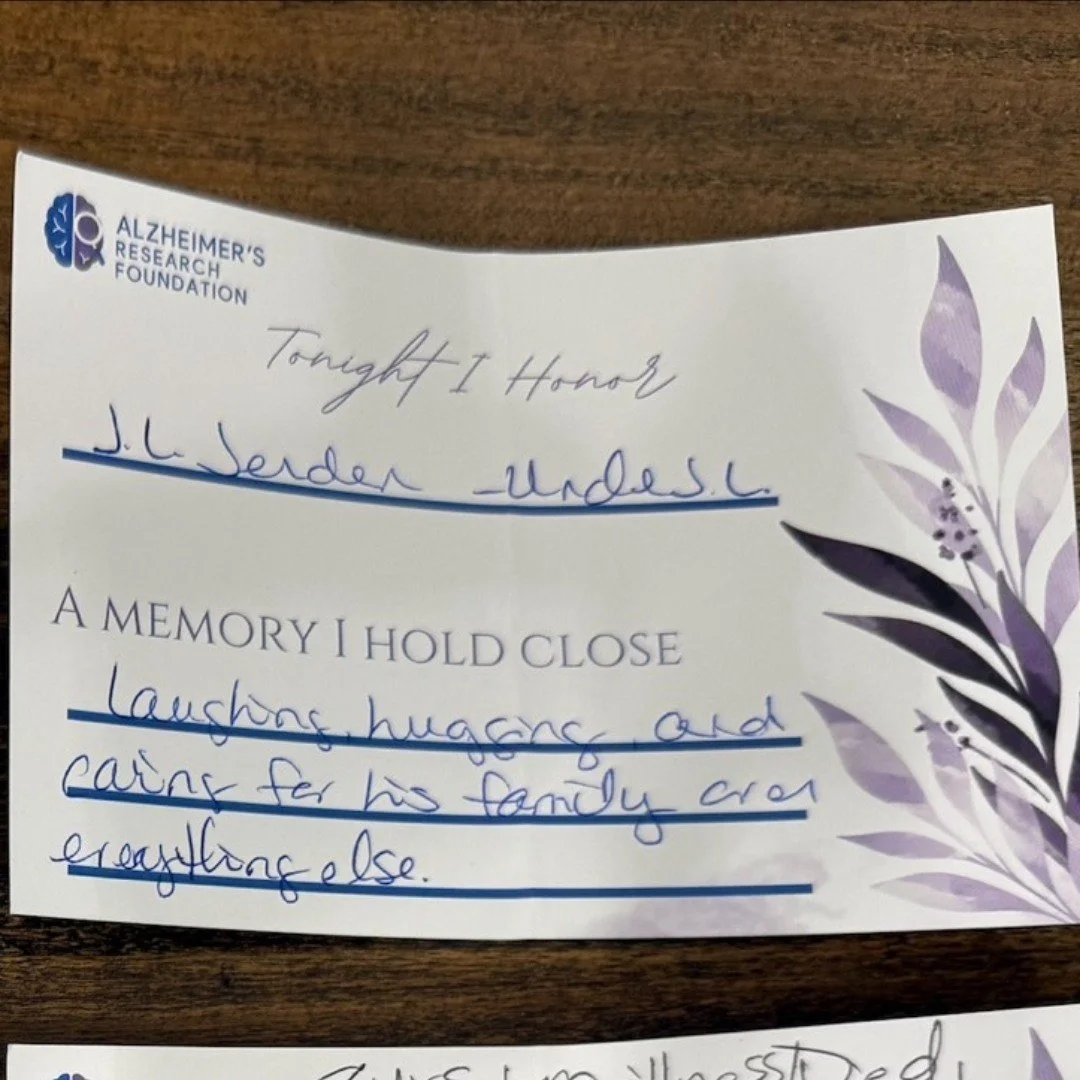 ALZHEIMER'S
RESEARCH
FOUNDATION
Tonight I Honor
J.L. Jerden - Uncle J.L.
A MEMORY I HOLD CLOSE
Laughing, hugging, and
caring for his family over
everything else.